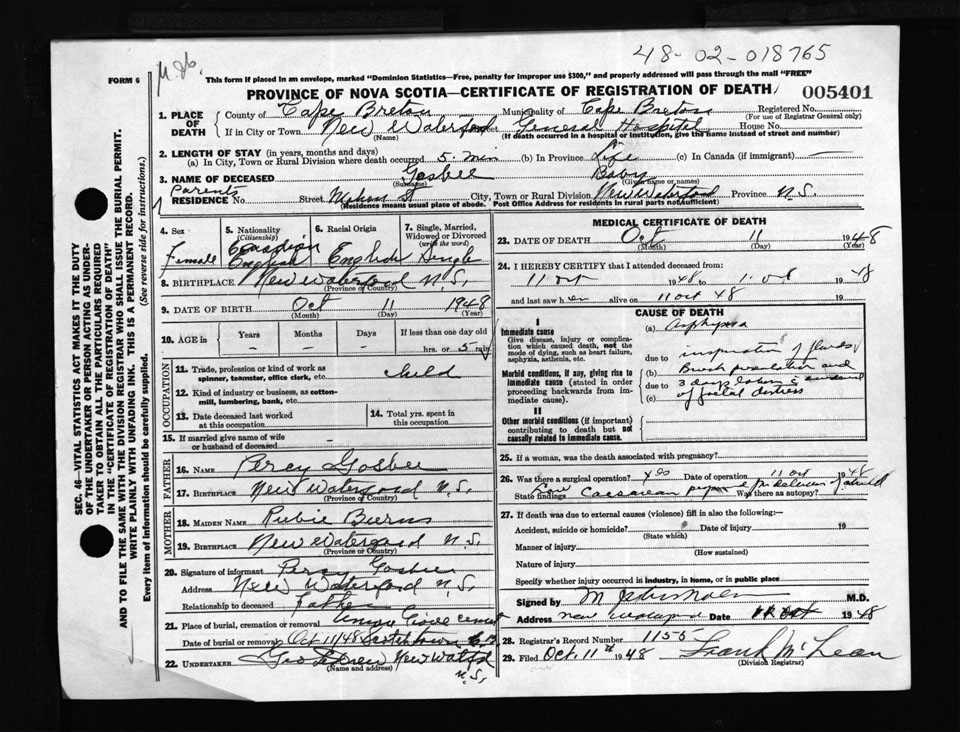 48-02-018765
FORM 6
This form if placed in an envelope, marked "Dominion Statistics—Free, penalty for improper use $300," and properly addressed will pass through the mail "FREE"
PROVINCE OF NOVA SCOTIA—CERTIFICATE OF REGISTRATION OF DEATH
005401
SEC. 46—VITAL STATISTICS ACT MAKES IT THE DUTY
OF THE UNDERTAKER OR PERSON ACTING AS UNDER-
TAKER TO OBTAIN ALL THE PARTICULARS REQUIRED
IN THE "CERTIFICATE OF REGISTRATION OF DEATH"
AND TO FILE THE SAME WITH THE DIVISION REGISTRAR WHO SHALL ISSUE THE BURIAL PERMIT.
WRITE PLAINLY WITH UNFADING INK. THIS IS A PERMANENT RECORD.
Every item of Information should be carefully supplied. (See reverse side for instructions.)
1. PLACE OF DEATH
County of Cape Breton Municipality of Cape Breton Registered No.
(For use of Registrar General only)
If in City or Town New Waterford General Hospital House No.
(Name) (If death occurred in a hospital or institution, give the name instead of street and number)
2. LENGTH OF STAY (in years, months and days)
(a) In City, Town or Rural Division where death occurred 5 min (b) In Province Life (c) In Canada (if immigrant) —
3. NAME OF DECEASED Gosbee Baby
(Surname) (Given name or names)
Parents
RESIDENCE No. Street Mahon St City, Town or Rural Division New Waterford Province N.S.
(Residence means usual place of abode. Post Office Address for residents in rural parts not sufficient)
4. Sex Female
5. Nationality (Citizenship) Canadian English
6. Racial Origin English
7. Single, Married, Widowed or Divorced (write the word) Single
8. BIRTHPLACE New Waterford N.S.
(Province or Country)
9. DATE OF BIRTH Oct 11 1948
(Month) (Day) (Year)
10. AGE in Years Months Days If less than one day old
— — — hrs. or 5 min
OCCUPATION
11. Trade, profession or kind of work as spinner, teamster, office clerk, etc. child
12. Kind of industry or business, as cotton-mill, lumbering, bank, etc.
13. Date deceased last worked at this occupation
14. Total yrs. spent in this occupation
15. If married give name of wife or husband of deceased
FATHER
16. NAME Percy Gosbee
17. BIRTHPLACE New Waterford N.S.
(Province or Country)
MOTHER
18. MAIDEN NAME Rubie Burns
19. BIRTHPLACE New Waterford N.S.
(Province or Country)
20. Signature of informant Percy Gosbee
Address New Waterford N.S.
Relationship to deceased Father
21. Place of burial, cremation or removal
Date of burial or removal Oct 11/48 Scotchtown C.B.
22. UNDERTAKER Geo New Watfd
(Name and address) N.S.
MEDICAL CERTIFICATE OF DEATH
23. DATE OF DEATH Oct 11 1948
(Month) (Day) (Year)
24. I HEREBY CERTIFY that I attended deceased from
11 Oct 1948 to 1948
and last saw h er alive on 11 oct 48 19
CAUSE OF DEATH
I
Immediate cause
Give disease, injury or complication which caused death, not the mode of dying, such as heart failure, asphyxia, asthenia, etc.
(a) Asphyxia
due to
Morbid conditions, if any, giving rise to immediate cause (stated in order proceeding backwards from immediate cause).
(b) inspiration of fluids
due to
(c) 3 days labor
II
Other morbid conditions (if important) contributing to death but not causally related to immediate cause.
25. If a woman, was the death associated with pregnancy?
26. Was there a surgical operation? yes Date of operation 11 oct 1948
State findings Low Caesarean Was there an autopsy?
27. If death was due to external causes (violence) fill in also the following:—
Accident, suicide or homicide? Date of injury 19
(State which)
Manner of injury
(How sustained)
Nature of injury
Specify whether injury occurred in industry, in home, or in public place
Signed by M.D.
Address New Waterford Date 11 Oct 1948
28. Registrar's Record Number 1155
29. Filed Oct. 11th 1948 Frank McLean
(Division Registrar)